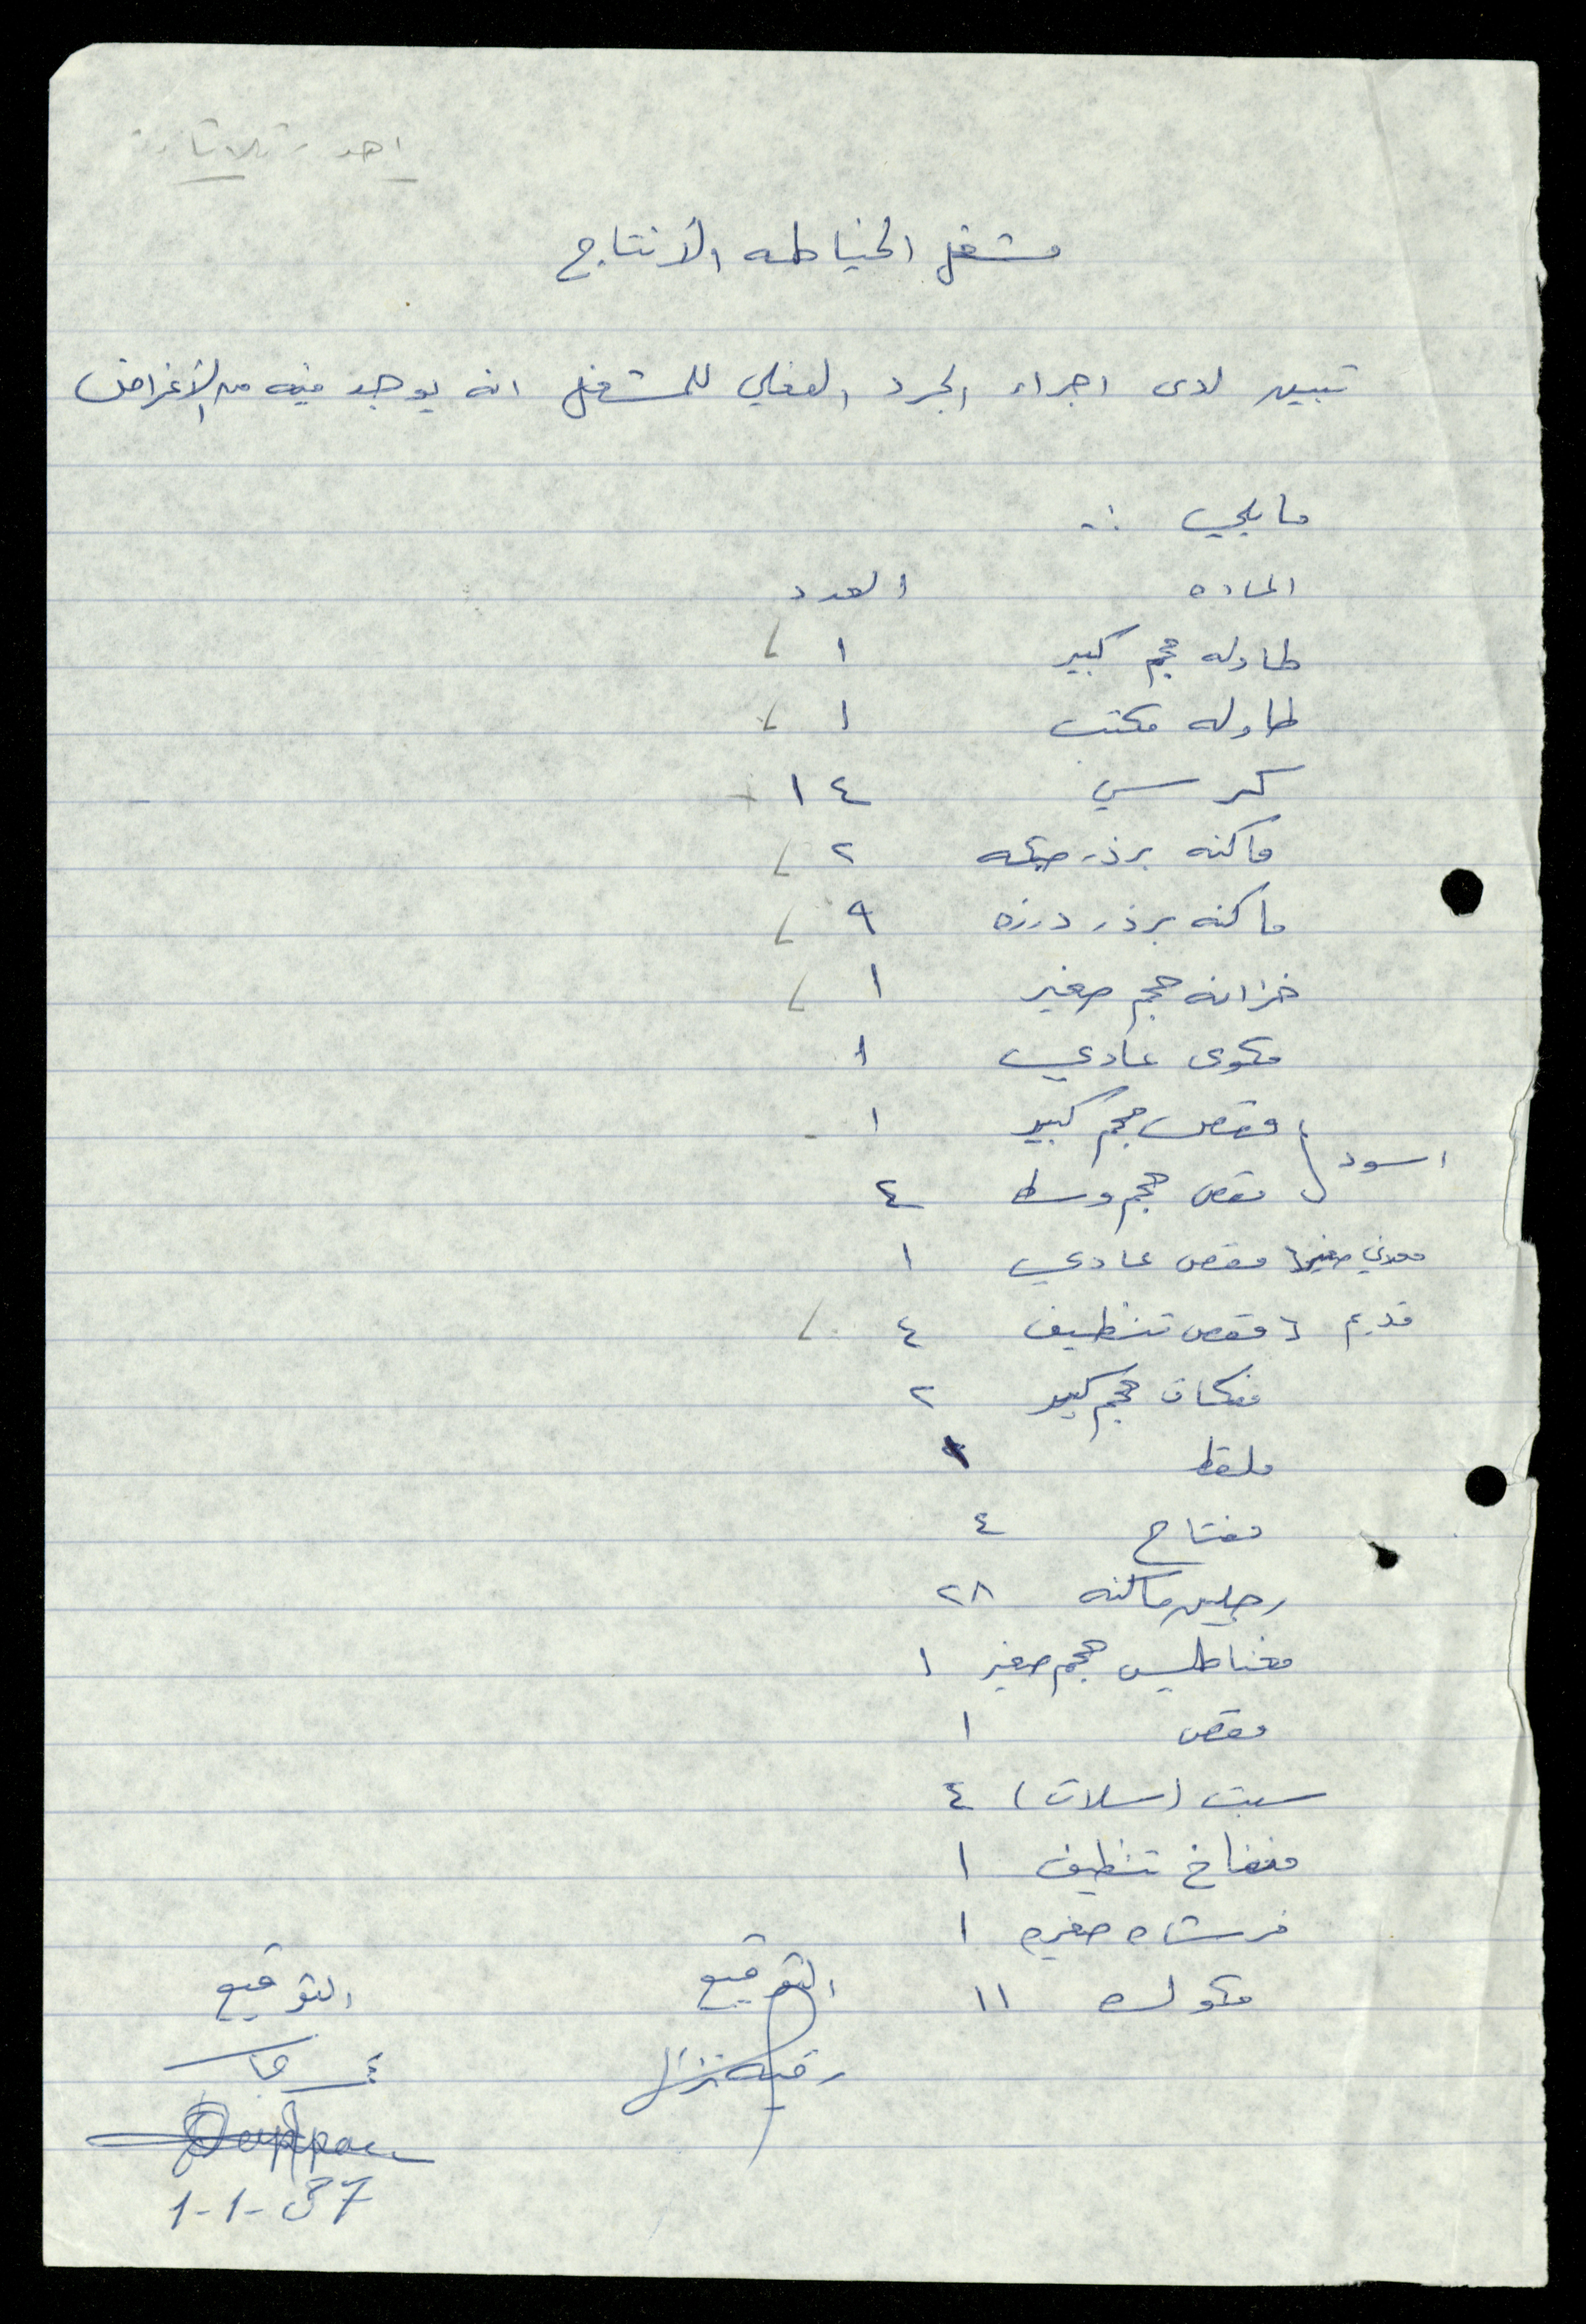 مشغل الخياطه الأنتاج
تبين لدى اجراء الجرد الفعلي للمشغل انه يوجد فيه من الأغراض
ما يلي :-
الماده العدد
طاوله حجم كبير ١
طاوله مكتب ١
كرسي ١٤
ماكنه برذر حبكه ٢
ماكنه برذر درزه ٩
خزانه حجم صغير ١
مكوى عادي ١
مقص حجم كبير ١
اسود
مقص حجم وسط ٤
معدني صغير مقص عادي ١
قديم مقص تنظيف ٤
مفكات حجم كبير ٢
ملقط
مفتاح ٤
رجلين ماكنه ٢٨
مغناطيس حجم صغير ١
مقص ١
سبت (سلات) ٤
منفاخ تنظيف ١
فرشاه صغيره ١
مكوك ١١
التوقيع التوقيع
رقيه نزال
1-1-87